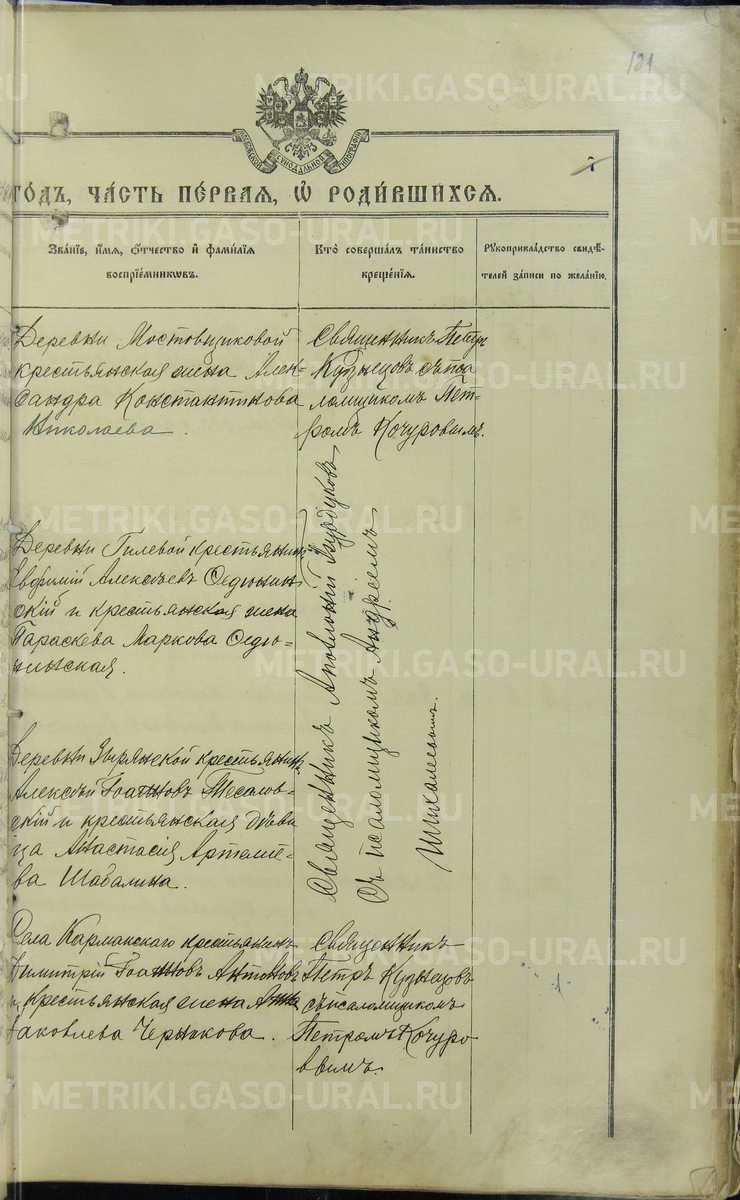 121
МОСКОВСКОЙ СѴНОДАЛЬНОЙ ТИПОГРАФІИ
ГО́ДЪ, ЧА́СТЬ ПЕ́РВАЯ, Ѡ҆ РОДИ́ВШИХСЯ.
Зва́нїе, и҆́мя, ѻ҆́тчество и҆ фами́лїя
воспрїе́мникѡвъ.
Кто̀ соверша́лъ та́инство
креще́нїя.
Рꙋкоприкла́дство свидѣ́-
телей за́писи по жела́нїю.
Деревни Мостовщиковой
крестьянская жена Алек-
сандра Константинова
Николаева.
Священникъ Петръ
Кузнецовъ съ пса
ломщикомъ Пет-
ромъ Кочуровымъ.
Деревни Гилевой крестьянинъ
Евфимий Алексѣевъ
скій и крестьянская жена
Параскева Маркова
Священникъ Аполлоній
съ псаломщикомъ Андреемъ
Деревни Зырянской крестьянинъ
Алексѣй Іоанновъ
скій и крестьянская дѣви
ца Анастасія Артеміе-
ва Шабалина.
Села Карманскаго крестьянинъ
Димитрій Іоанновъ Антоновъ
и крестьянская жена Анна
Яковлева Чернакова.
Священникъ
Петръ Кузнецовъ
съ псаломщикомъ
Петромъ Кочуро
вымъ.
METRIKI.GASO-URAL.RU